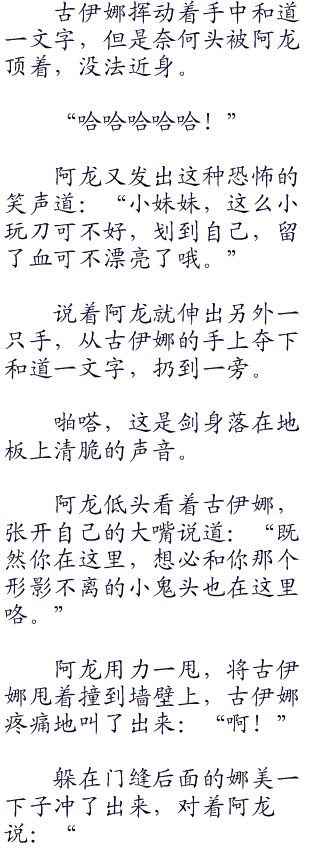 古伊娜挥动着手中和道
一文字，但是奈何头被阿龙
顶着，没法近身。
“哈哈哈哈哈！”
阿龙又发出这种恐怖的
笑声道：“小妹妹，这么小
玩刀可不好，划到自己，留
了血可不漂亮了哦。”
说着阿龙就伸出另外一
只手，从古伊娜的手上夺下
和道一文字，扔到一旁。
啪嗒，这是剑身落在地
板上清脆的声音。
阿龙低头看着古伊娜，
张开自己的大嘴说道：“既
然你在这里，想必和你那个
形影不离的小鬼头也在这里
咯。”
阿龙用力一甩，将古伊
娜甩着撞到墙壁上，古伊娜
疼痛地叫了出来：“啊！”
躲在门缝后面的娜美一
下子冲了出来，对着阿龙
说：“